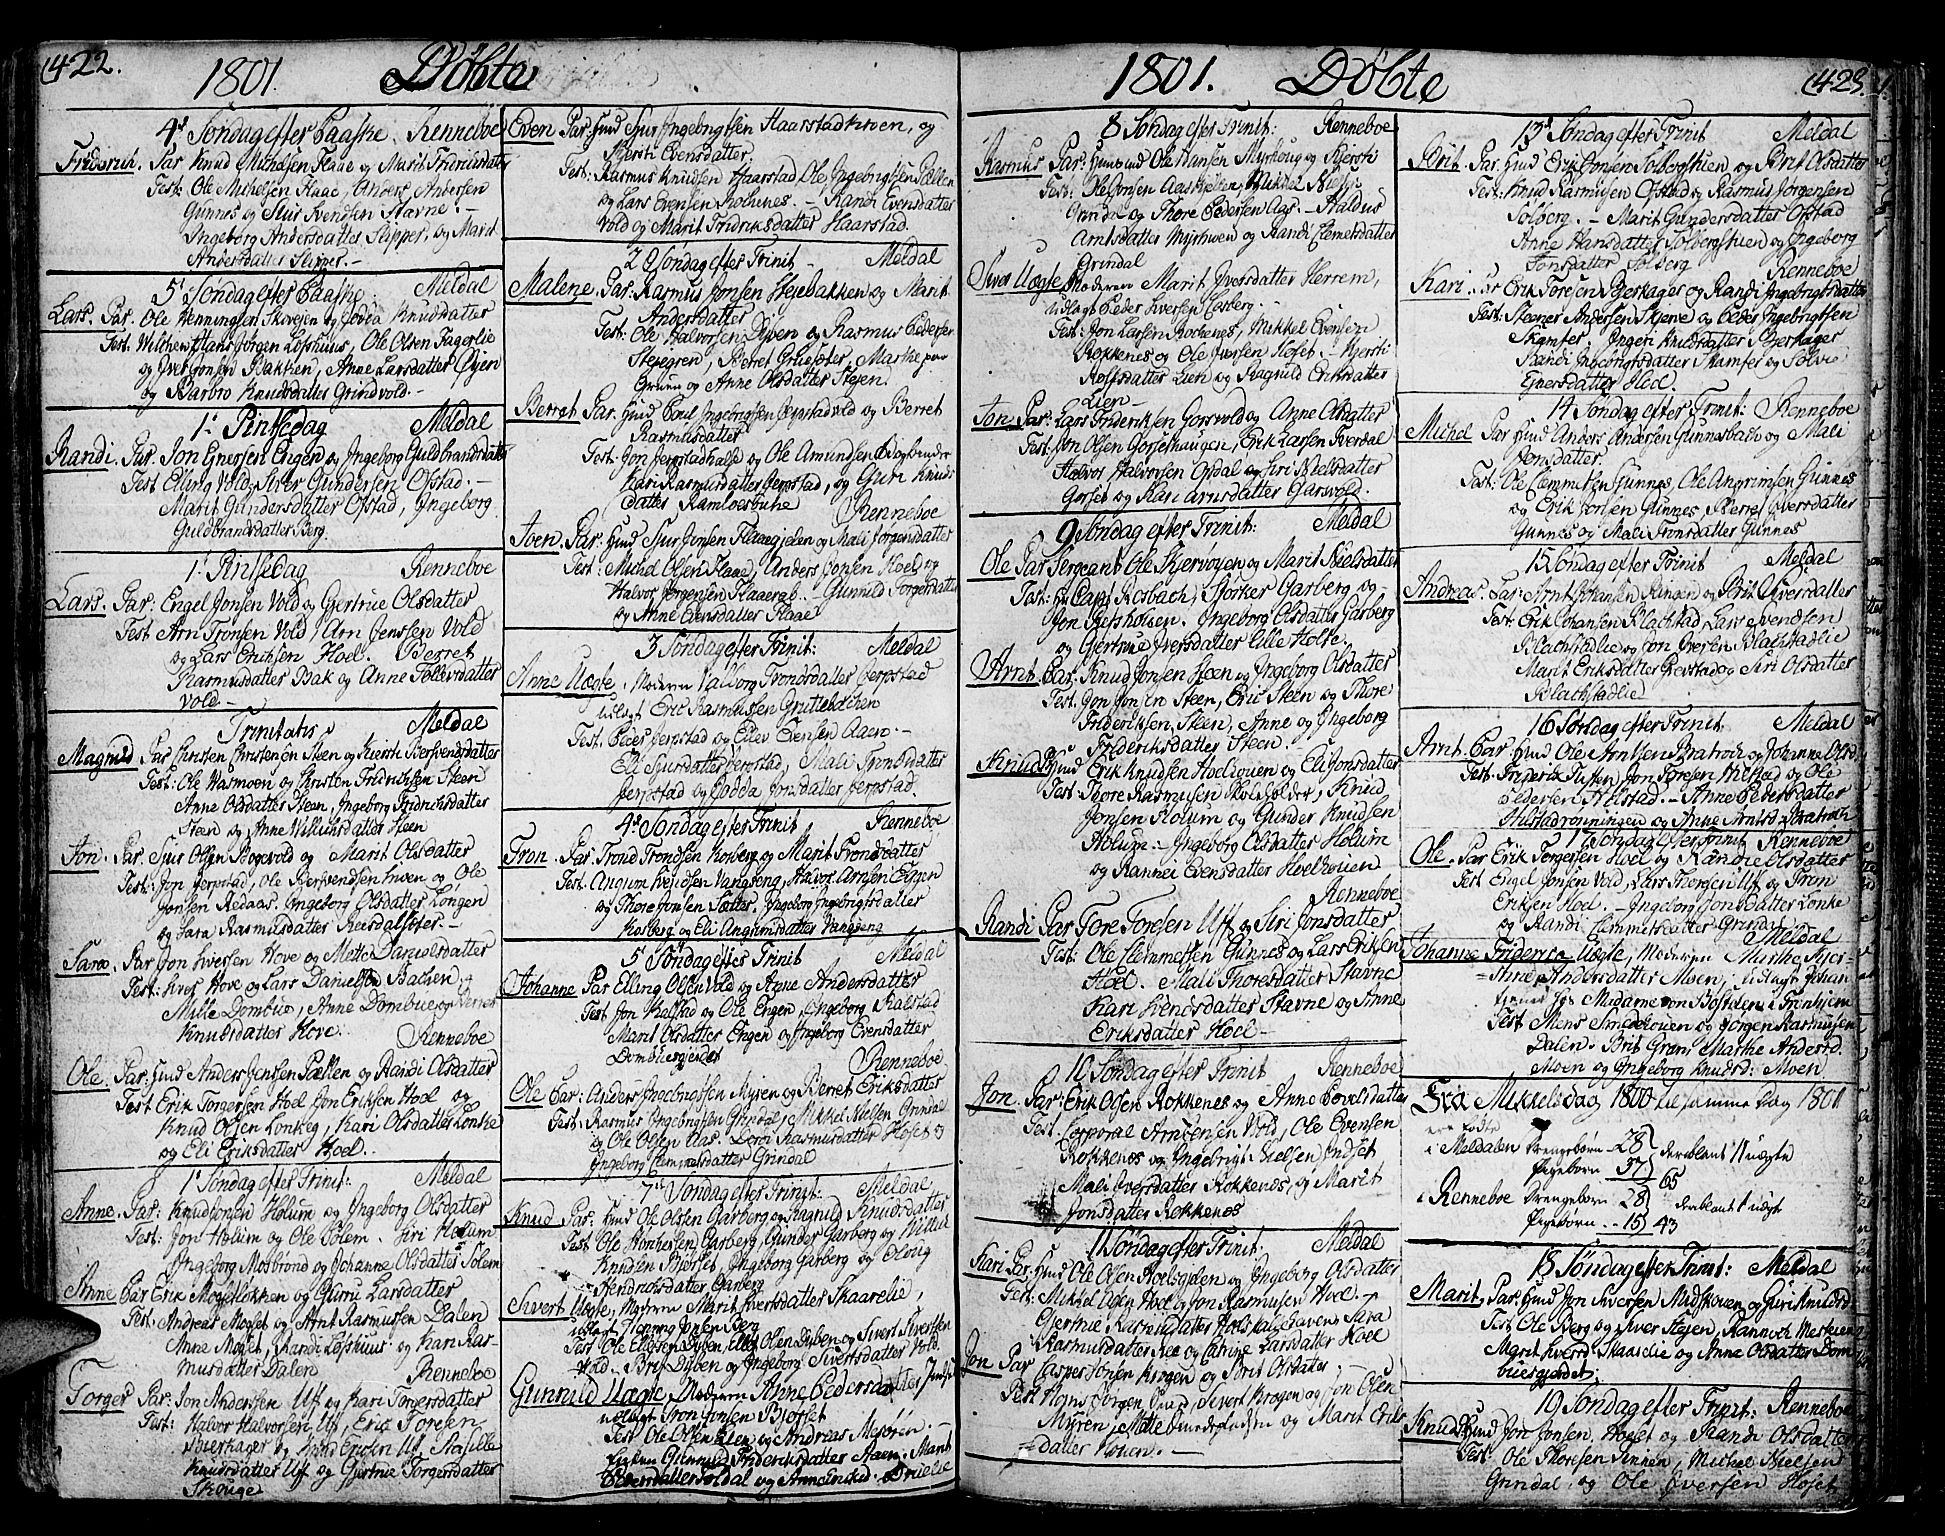 422.
1801. Döbte
4de Søndag efter Paaske. Renneboe
Friderich. Par Knud Michelsen Flaae og Marit Fridricsdatter
Test: Ole Michelsen Flaae, Anders Andersen
Gunnes og Siur Svendsen Stavne. -
Ingeborg Andersdatter Slipper, og Marit
Andersdatter Slipper. -
5 Søndag efter Paaske Meldal
Lars. Par. Ole Henningsen Skivesen og Jodda Knudsdatter
Test: Hans Jörgen Löfshuus, Ole Olsen Fagerlie
og Iver Jonsen Bakken, Anne Larsdatter
og Barbro Knudsdatter Grindvold. -
1. Pintsedag Meldal
Randi. Par. Jon Enersen Engen og Ingeborg Guldbrandsdatter
Test Elling Vold, Siver Gundersen Ofstad. -
Marit Gundersdatter Ofstad, Ingeborg
Guldbrandsdatter Berg.
1. Pintsedag Renneboe
Lars. Par: Engel Jonsen Vold og Gjertrue Olsdatter
Test Arn Tronsen Vold, Arn Jenssen Vold
og Lars Erichsen Hoel. Berret
Rasmusdatter Bak og Anne Tollevsdatter
Vold -
Trinitatis Meldal
Magnild Par Christen Christensen Steen og Kiersti Bersvendsdatter
Test: Ole Varmoen og Christen Fridrichsen Steen
Anne Olsdatter Steen, Ingeborg Fridrichsdatter
Steen og Anne Villumsdatter Steen
Jon. Par Sjur Olsen Bogevold og Marit Olsdatter
Test: Jon Jerpstad, Ole Bersvendsen Moen og Ole
Jonsen Redaas. Ingeborg Olsdatter Longen
og Sara Rasmusdatter -
Sara Par Jon Iversen Hove og Mette Danielsdatter
Test: Iver Hove og Lars Danielsen Bachen.
Mille Dombue, Anne Dombue og Berret
Knudsdatter Hove. Renneboe
Ole Par: Hmd Anders Jensen Pæcken og Randi Olsdatter
Test Erik Torgersen Hoel Jon Eriksen Hoel og
Knud Olsen Lonkeg, Kari Olsdatter Lonke
og Eli Eriksdatter Hoel.
1ste Søndag efter Trinit: Meldal
Anne. Par: Knud Jonsen Holum og Ingeborg Olsdatter
Test: Jon Holum og Ole Solem. Siri Holum
Ingeborg Mosbrond og Johanne Olsdatter Solem
Anne Par Erik Mogetlökken og Guru Larsdatter
Test. Andreas Moget og Arnt Rasmussen Dalen
Anne Moget, Randi Löfshuus og Kari Ras-
musdatter Dalen Renneboe
Torger Par: Jon Andersen Uf og Kari Torgersdatter
Test: Halvor Halvorsen Uf, Eric Toresen
Bierkager og Eriksen Uf
Knudsdatter Uf og Gjertrue Torgersdatter
Skouge
Even Par. Hmd Sjur Ingebrigtsen Haarstadhoen, og
Kjersti Evensdatter.
Test: Rasmus Knudsen Haarstad Ole Ingebrigtsen Pællen
og Lars Evensen Rokenes. - Randi Evensdatter
Vold og Marit Fridriksdatter Haarstad.
2 Søndag efter Trinit - Meldal
Malene. Par: Rasmus Jonsen Stejebakken og Marit
Andersdatter
Test: Ole Halvorsen Dyben og Rasmus Peders:
Stejegren, Berret Gruesæter, Marthe
Gruen og Anne Olsdatter Stejen.
Berret Par. Hmd Poul Ingebrigtsen Jerpstadvold og Berret
Rasmusdatter
Test: Jon Jerpstadhalse og Ole Amundsen Bogbinder
Kari Rasmusdatter Jerpstad, og Guri Knuds
datter Ramloesbuhe Renneboe
Joen. Par: Hmd Sjur Jonsen Flaaegjelen og Mali Jörgensdatter
Test: Michel Olsen Flaae, Anders Jonsen Hoel og
Halvor Jörgensen Flaaerae. - Gunnild Torgersdatter
og Anne Evensdatter Flaae
3 Søndag efter Trinit: Meldal
Anne Uægte, Moderen Valborg Trondsdatter Jerpstad
udlagt Eric Rasmussen
Test. Peder Jerpstad og Ellev Evensen Aaen. -
Eli Sjursdatter Jerpstad, Mali Trondsdatter
Jerpstad og Jodda Jonsdatter Jerpstad.
4de Søndag efter Trinit Renneboe
Tron. Par: Trond Trondsen Kosberg og Marit Trondsdatter
Test. Angrim Svendsen Vangseng, Halvor Arnsen
og Thore Jonsen Sætter. Ingeborg Ingebrigtsdatter
Kosberg og Eli Angrimsdatter Vangseng
5 Søndag efter Trinit Meldal
Johanne Par Elling Olsen Vold og Anne Andersdatter
Test Jon Kalstad og Ole Engen, Ingeborg Kalstad
Marit Olsdatter Engen og Ingeborg Evensdatter
Dombuesgierdet Renneboe
Ole Par: Anders Ingebrigtsen Myren og Berret Eriksdatter
Test: Rasmus Ingebrigtsen Grindal, Mikkel Nielsen Grindal
og Ole Olsen Aas. Rasmusdatter Hofset og
Ingeborg Clemmetsdatter Grindal
7de Søndag efter Trinit: Meldal
Knud Par: Hmd Ole Olsen Garberg og Ragnild Knudsdatter
Test Ole Garberg, Gunder Garberg og Villum
Knudsen Bjørset, Ingeborg Garberg og Olaug
Hendricsdatter Garberg
Sivert Uægte, Moderen Marit Iversdatter Skaarelie,
udlagt Henning Jonsen Berg
Test Ole Ellefsen Dyben, Olsen Dyben og Sivert Sivertsen
Vold. Brit Dyben og Ingeborg Sivertsdatter Vold.
Gunnild Uægte, Moderen Anne Pedersdatter Indset
udlagt Tron Jonsen Bjørset
Test Ole Olsen Elen og Andreas Mesöien. -
Gunnild Fridericsdatter Aaen, Marit
Pedersdatter og Anne
1801. Döbte 423.
8 Søndag efter Trinit: Renneboe
Rasmus Par: Ole Hansen Myrhoug og Kjersti
Test: Ole Jonsen Aaskjölen, Mikkel
Grindal og Thore Pedersen Aas - Haldus
Arntsdatter Myrhoen og Randi Clemetsdatter
Grindal
Siver Uægte Moderen Marit Iversdatter Herrem,
udlagt Peder Iversen Lesberg. -
Test: Jon Larsen Rochenes, Mikkel Evensen
Rokkenes og Ole Iversen Hofset - Kjersti
Rolfsdatter Lien og Ragnild Eriksdatter
Lien -
Jon Par: Lars Frideriksen Gorsvold og Anne Olsdatter
Test: Jon Olsen Gorsethaugen, Erik Larsen Sverdal
Halvor Halvorsen Ofsdal og Siri Nielsdatter
Gorset og Kari Arnsdatter Garsvold.
9 Søndag efter Trinit: Meldal
Ole Par Sergeant Ole Skjervöyen og Marit Nielsdatter
Test: Hr Capt: Rosbach, Stórker Garberg og
Jon Isefsholsen. Ingeborg Olsdatter Garberg
og Gjertrue Iversdatter Lille Holte.
Arnt Par. Knud Jonsen Steen og Ingeborg Olsdatter
Test: Jon Jonsen Steen, Eric Steen og Thore
Frideriksen Steen, Anne og Ingeborg
Frideriksdatter Steen. -
Knud Hmd Erik Knudsen Hoelsouen og Eli Jonsdatter
Test: Thore Rasmusen Skoleholder, Knud
Jonsen Holum og Gunder Knudsen
Holum - Ingeborg Olsdatter Holum
og Rannei Evensdatter Hoelhouen
Renneboe
Randi Par Tore Toresen Uff og Siri Jonsdatter
Test: Ole Clemmetsen Gunnes og Lars Eriksen
Hoel. Mali Thoresdatter Stavne
Kari Svendsdatter Stavne og Anne
Eriksdatter Hoel -
10 Søndag efter Trinit Renneboe
Jon. Par: Erik Olsen Rokkenes og Anne Povelsdatter
Test: Corporal Arnt Jensen Vold, Ole Evensen
Rokkenes og Ingebrigt Nielsen Indset
Mali Iversdatter Rokkenes, og Marit
Jonsdatter Rokkenes
11 Søndag efter Trinit: Meldal
Kari Par: Hmd Ole Olsen Hoelsgjelen og Ingeborg Olsdatter
Test: Mikkel Olsen Hoel og Jon Rasmusen Hoel -
Gjertrue Sara
Rasmusdatter Ree og Catrine Larsdatter Hoel
Jon Par Casper Jonsen Krogen og Brit Olsdatter -
Test Hans Jörgen, Sivert Krogen og Jon Olsen
Myren, og Marit Eriks
datter Moen. -
13de Søndag efter Trinit Meldal
Brit Par Hmd Erik Jonsen Solbergshien og Brit Olsdatter
Test: Knud Rasmusen Ofstad og Rasmus Jörgensen
Solberg. - Marit Gundersdatter Ofstad
Anne Hansdatter Solbergshien og Ingeborg
Jonsdatter Solberg Renneboe
Kari. Par Erik Toresen Bjerkager og Randi Ingebrigtsdatter
Test: Steener Andersen Skjeve og Peder Ingebrigtsen
Skamfer, Ingeri Knudsdatter Bjerkager
Randi Ingebrigtsdatter Skamfer og Solvie
Enersdatter Hoel.
14 Søndag efter Trinit: Renneboe
Michel Par Hmd Anders Andersen Gunnesbach og Mali
Jonsdatter.
Test: Ole Clemmetsen Gunnes, Ole Angrimsen Gunnes
og Erik Jonsen Gunnes, Berret Iversdatter
Gunnes og Mali Tronsdatter Gunnes
15 Søndag efter Trinit Meldal
Andreas. Par: Arnt Johansen Ringen og Brit Iversdatter
Test: Erik Johansen Blachstad Lars Svendsen
Blachstadlie og Jon Iversen Blachstadlie
Marit Eriksdatter Grevstad og Siri Olsdatter
Blachstadlie
16 Søndag efter Trinit Meldal
Arnt. Par: Hmd Ole Arntsen Bratroch og Johanne Olsd
Test: Friderik Jon Toresen og Ole
Pedersen Kelstad. - Anne Pedersdatter
og Anne Arntsd Bratroch
17 Søndag efter Trinit Renneboe
Ole. Par Erik Torgersen Hoel og Randie Olsdatter
Test Engel Jonsen Vold, Lars Thoresen Uf og Tron
Eriksen Hoel. - Ingeborg Jonsdatter Lonke
og Randi Clemmetsdatter Grindal
Meldal
Johanne Friderica Uægte, Moderen Marthe Kjer-
Anne Andersdatter Moen, udlagt Johan
Madame von Bostelen i Tronhiem
Test Mons Smedhouen og Jorgen Rasmusen
Dalen. Brit Gran, Marthe Andersd.
Moen og Ingeborg Knudsd: Moen
Fra Mikkelsdag 1800 til samme Dag 1801
ere födte
i Meldalen Drengebörn - 28
Pigebörn 37
65 deriblant 11 uægte
i Renneboe Drengebörn 28
Pigebörn .. 15
43 deriblant 1 uægt
18 Søndag efter Trinit: Meldal
Marit, Par: Hmd Jon Siversen Midskoven og Siri Knudsd
Test Ole Berg og Siver Stejen, Rannoch
Marit Iversd Skaarelie og Anne Olsdatter Dom
buesgjerdet.
19 Søndag efter Trinit: Renneboe
Knud Hmd Jon Jonsen Hofset og Randi Olsdatter
Test: Ole Thoresen Rinnen, Michel Nielsen
Grindal, og Ole Iversen Hofset